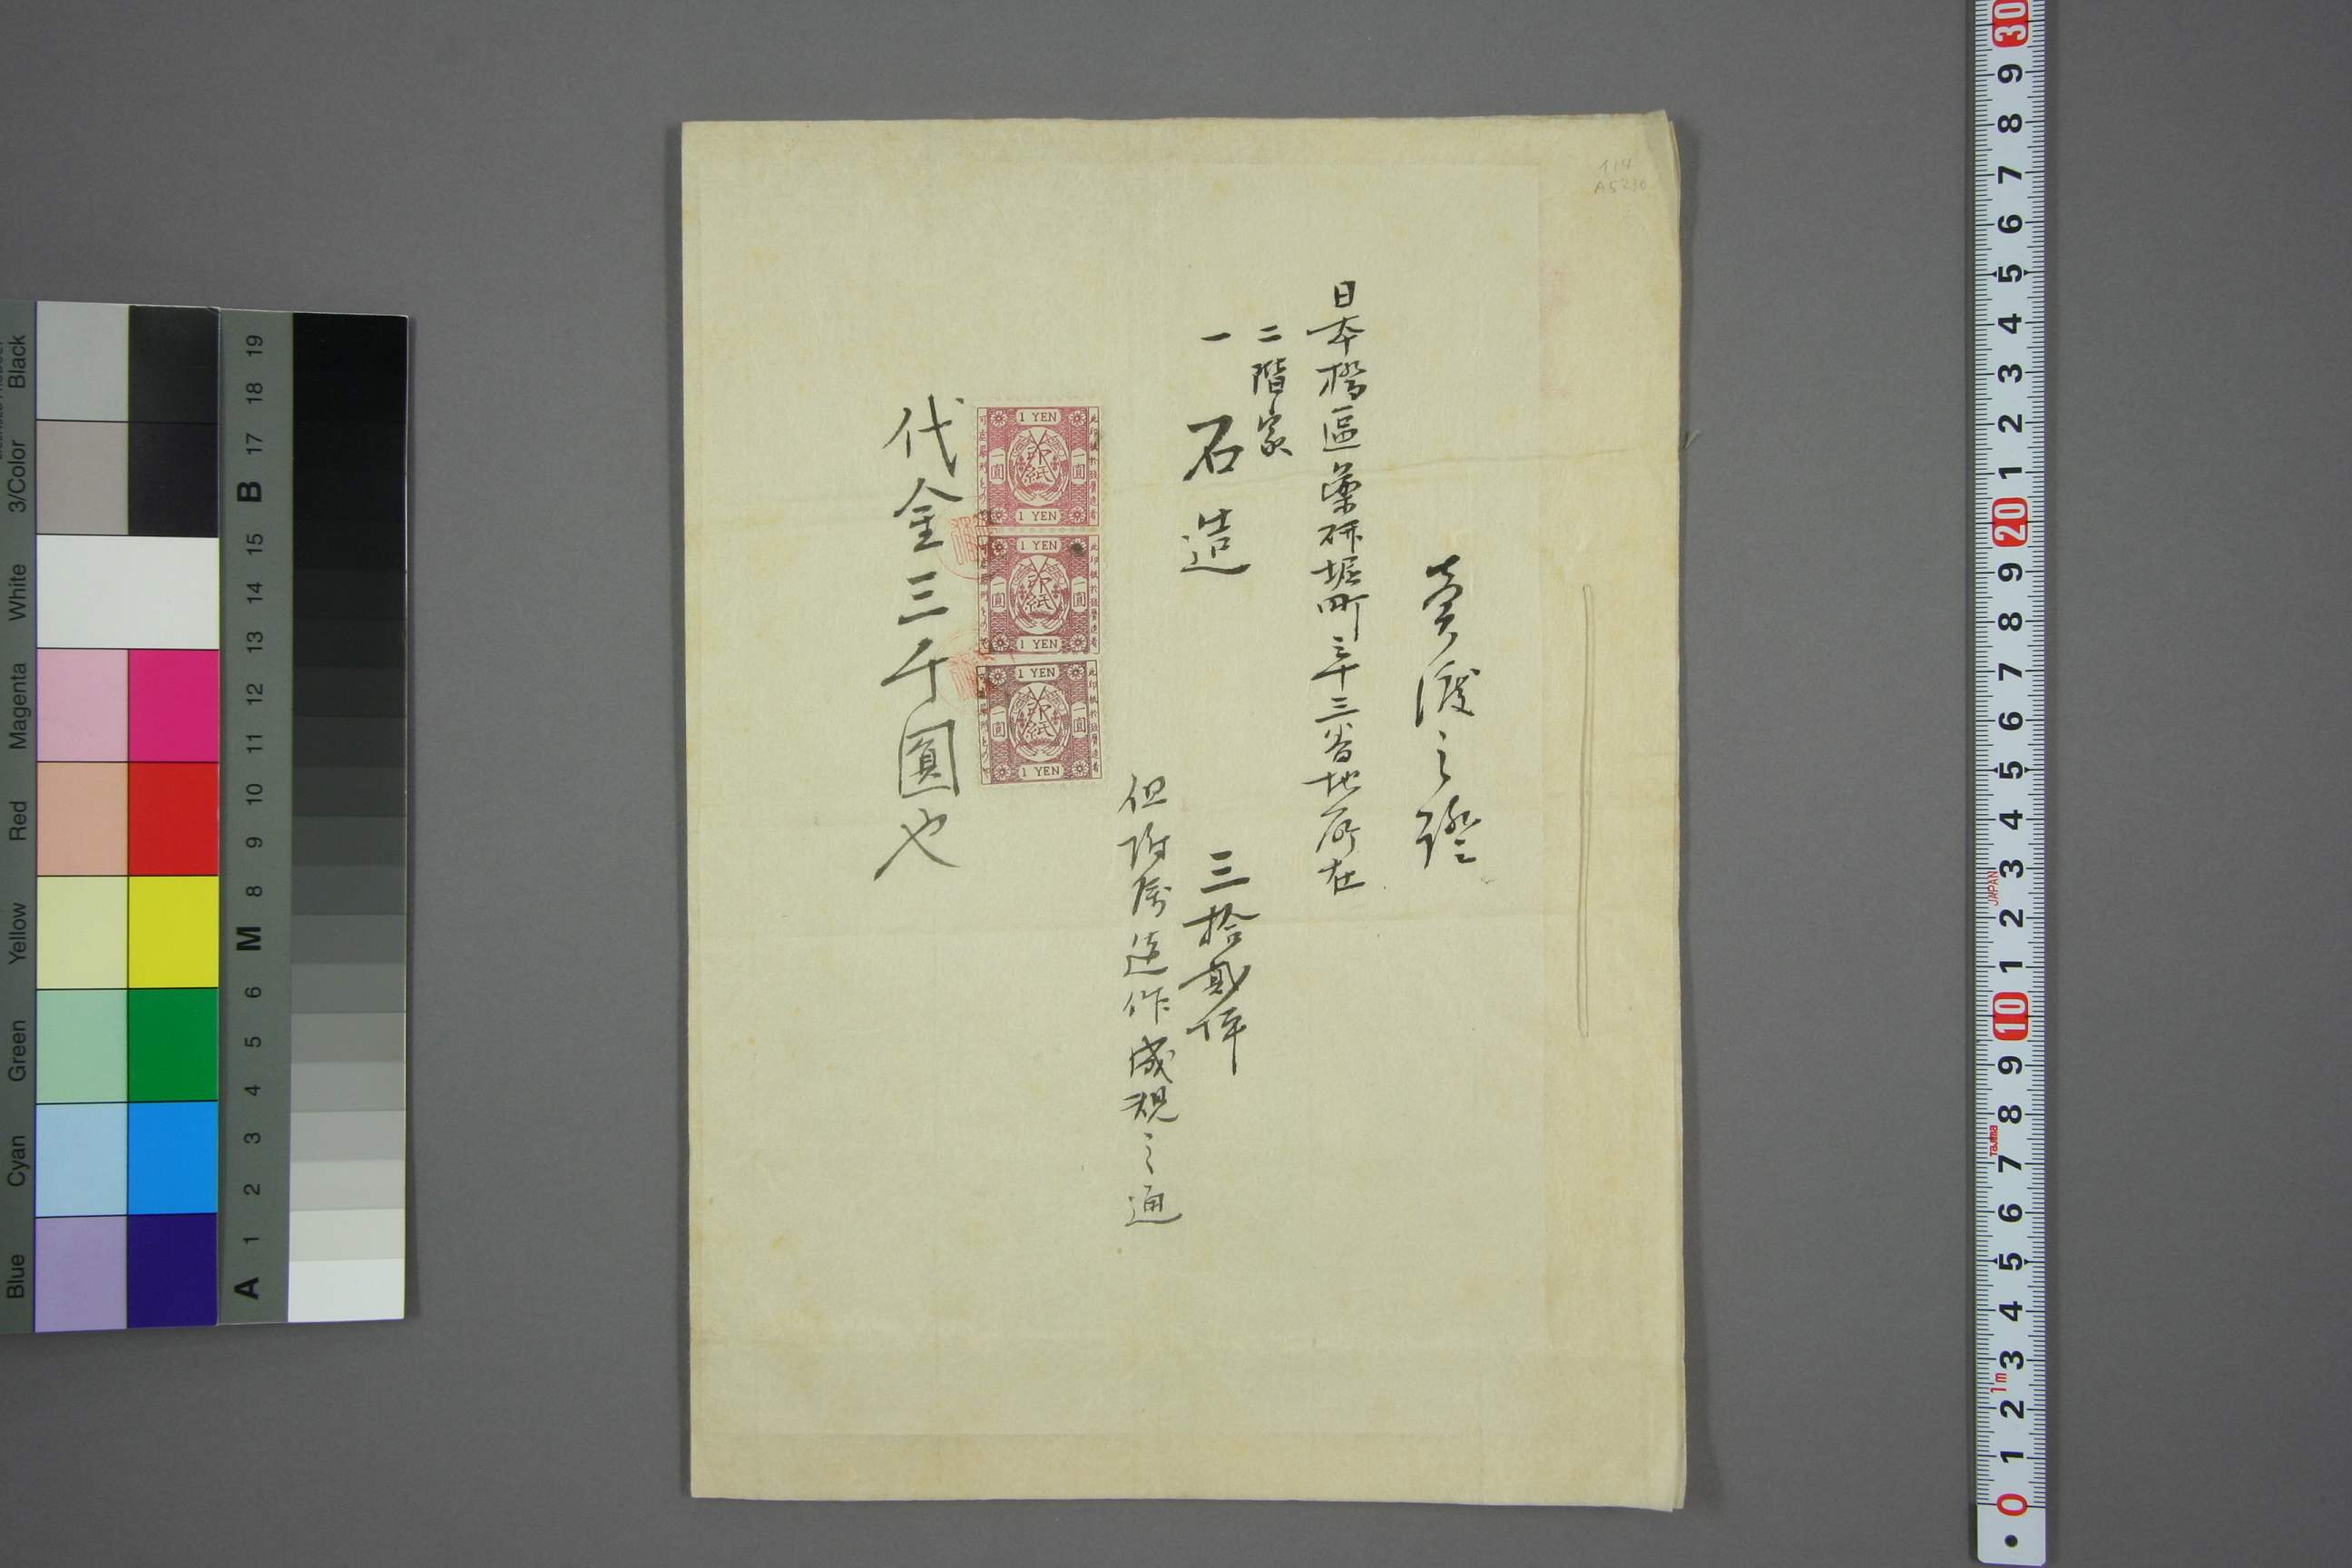 賣渡之證
日本橋區藥研堀町三十三番地所在
二階家
一 石造 三拾貳坪
但附属造作成規之通
1 YEN
印紙
一圓
一圓
1 YEN
1 YEN
印紙
一圓
一圓
1 YEN
1 YEN
印紙
一圓
一圓
1 YEN
代金三千圓也
A5230
Black
3/Color
White
Magenta
Red
Yellow
Green
Cyan
Blue
19
18
17
B
15
14
13
12
11
10
9
8
M
6
5
4
3
2
1
A
30
9
8
7
6
5
4
3
2
1
20
9
8
7
6
5
4
3
JAPAN
2
1
10
9
8
Tajima
7
6
5
4
3
1m
2
1
0